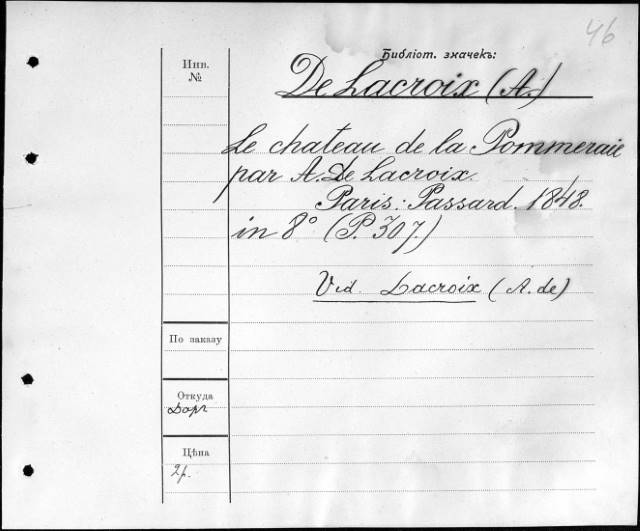 46
Библіот. значекъ:
Инв.
№
De Lacroix (A.)
Le chateau de la Pommeraie
par A. De Lacroix.
Paris: Passard. 1848.
in 8° (P. 307.)
Vid. Lacroix (A. de)
По заказу
Откуда
Дарг
Цѣна
2р.